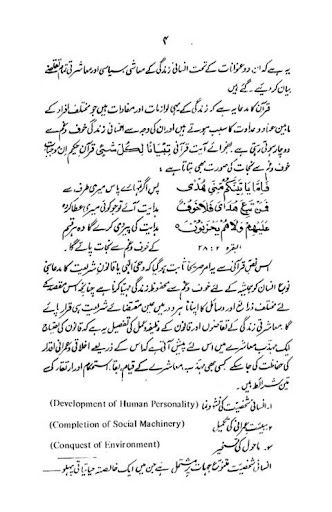 ۴
یہ ہے کہ ان دو عنوانات کے تحت انسانی زندگی کے معاشی، سیاسی اور معاشرتی تمام تقاضے
بیان کر دیے گئے ہیں
قرآن کا مدعا یہ ہے کہ زندگی کے یہی لوازمات اور مفادات ہیں جو مختلف افراد کے
مابین عناد و عداوت کا سبب ہوتے ہیں اور ان کی وجہ سے انسانی زندگی خوف و غم سے
دوچار ہوتی رہتی ہے بفحوائے آیت قرآنی تِبْیَانًا لِّکُلِّ شَیْءٍ قرآن حکیم اس
خوف و غم سے نجات کی صورت بھی بتاتا ہے :
فَاِمَّا یَاْتِیَنَّکُمْ مِّنِّیْ هُدًی پس اگر تمہارے پاس میری طرف سے
فَمَنْ تَبِعَ هُدَایَ فَلَا خَوْفٌ ہدایت آئے تو جو کوئی میری عطا کردہ
عَلَیْهِمْ وَلَا هُمْ یَحْزَنُوْنَ ہدایت کی پیروی کرے گا وہ ہر قسم
البقرہ ۲ : ۳۸ کے خوف و غم سے نجات پائے گا۔
اس نص قرآنی سے یہ امر صریحاً ثابت ہو گیا کہ وحی الٰہی یا قانون شریعت کا مدعا بنی
نوع انسان کو ہمیشہ کے لئے خوف و غم سے محفوظ زندگی مہیا کرنا ہے چنانچہ اس مقصد
کے لئے مختلف ذرائع اور وسائل کا اپنانا ہر دور میں عین مقتضائے شریعت ہی قرار پائے
گا۔ معاشرتی زندگی کے تقاضوں اور قانون کے وظیفہ عمل کی تفصیل یہ ہے کہ قانون کی احتیاج
ایک مہذب معاشرے میں اس لئے پیش آتی ہے کہ اس کے ذریعے اخلاقی و عمرانی اقدار
کی حفاظت کی جا سکے کسی بھی مہذب معاشرے کے قیام، بقا، استحکام اور ارتقاء کی
تین شرائط ہیں۔
۱۔ انسانی شخصیت کی نشوونما (Development of Human Personality)
۲۔ ہیئت عمرانی کی تکمیل (Completion of Social Machinery)
۳۔ ماحول کی تسخیر (Conquest of Environment)
انسانی شخصیت متنوع جہات پر مشتمل ہے جن میں ایک خالصتہ حیاتیاتی پہلو